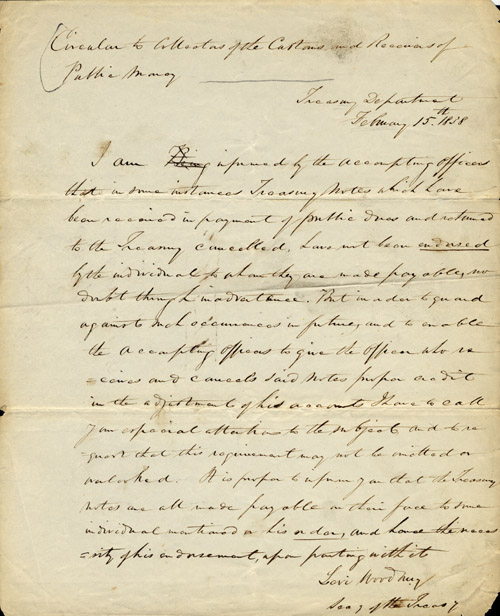 Circular to Collectors of the Customs and Receivers of
Public Money
Treasury Department
February 15th 1838
I am informed by the accounting officers
that in some instances Treasury Notes which have
been received in payment of public dues and returned
to the Treasury cancelled, have not been endorsed
by the individual to whom they are made payable, no
doubt through inadvertence. But in order to guard
against such occurrences in future, and to enable
the accounting officers to give the officer who re
=ceives and cancels said notes proper credit
in the adjustment of his accounts I have to call
your especial attention to the subject, and to re
=quest that this requirement may not be omitted or
overlooked. It is proper to inform you that the Treasury
notes are all made payable on their face to some
individual mentioned or his order, and hence the neces
=sity of his endorsement, upon parting with it
Levi Woodbury
Secy of the Treasy